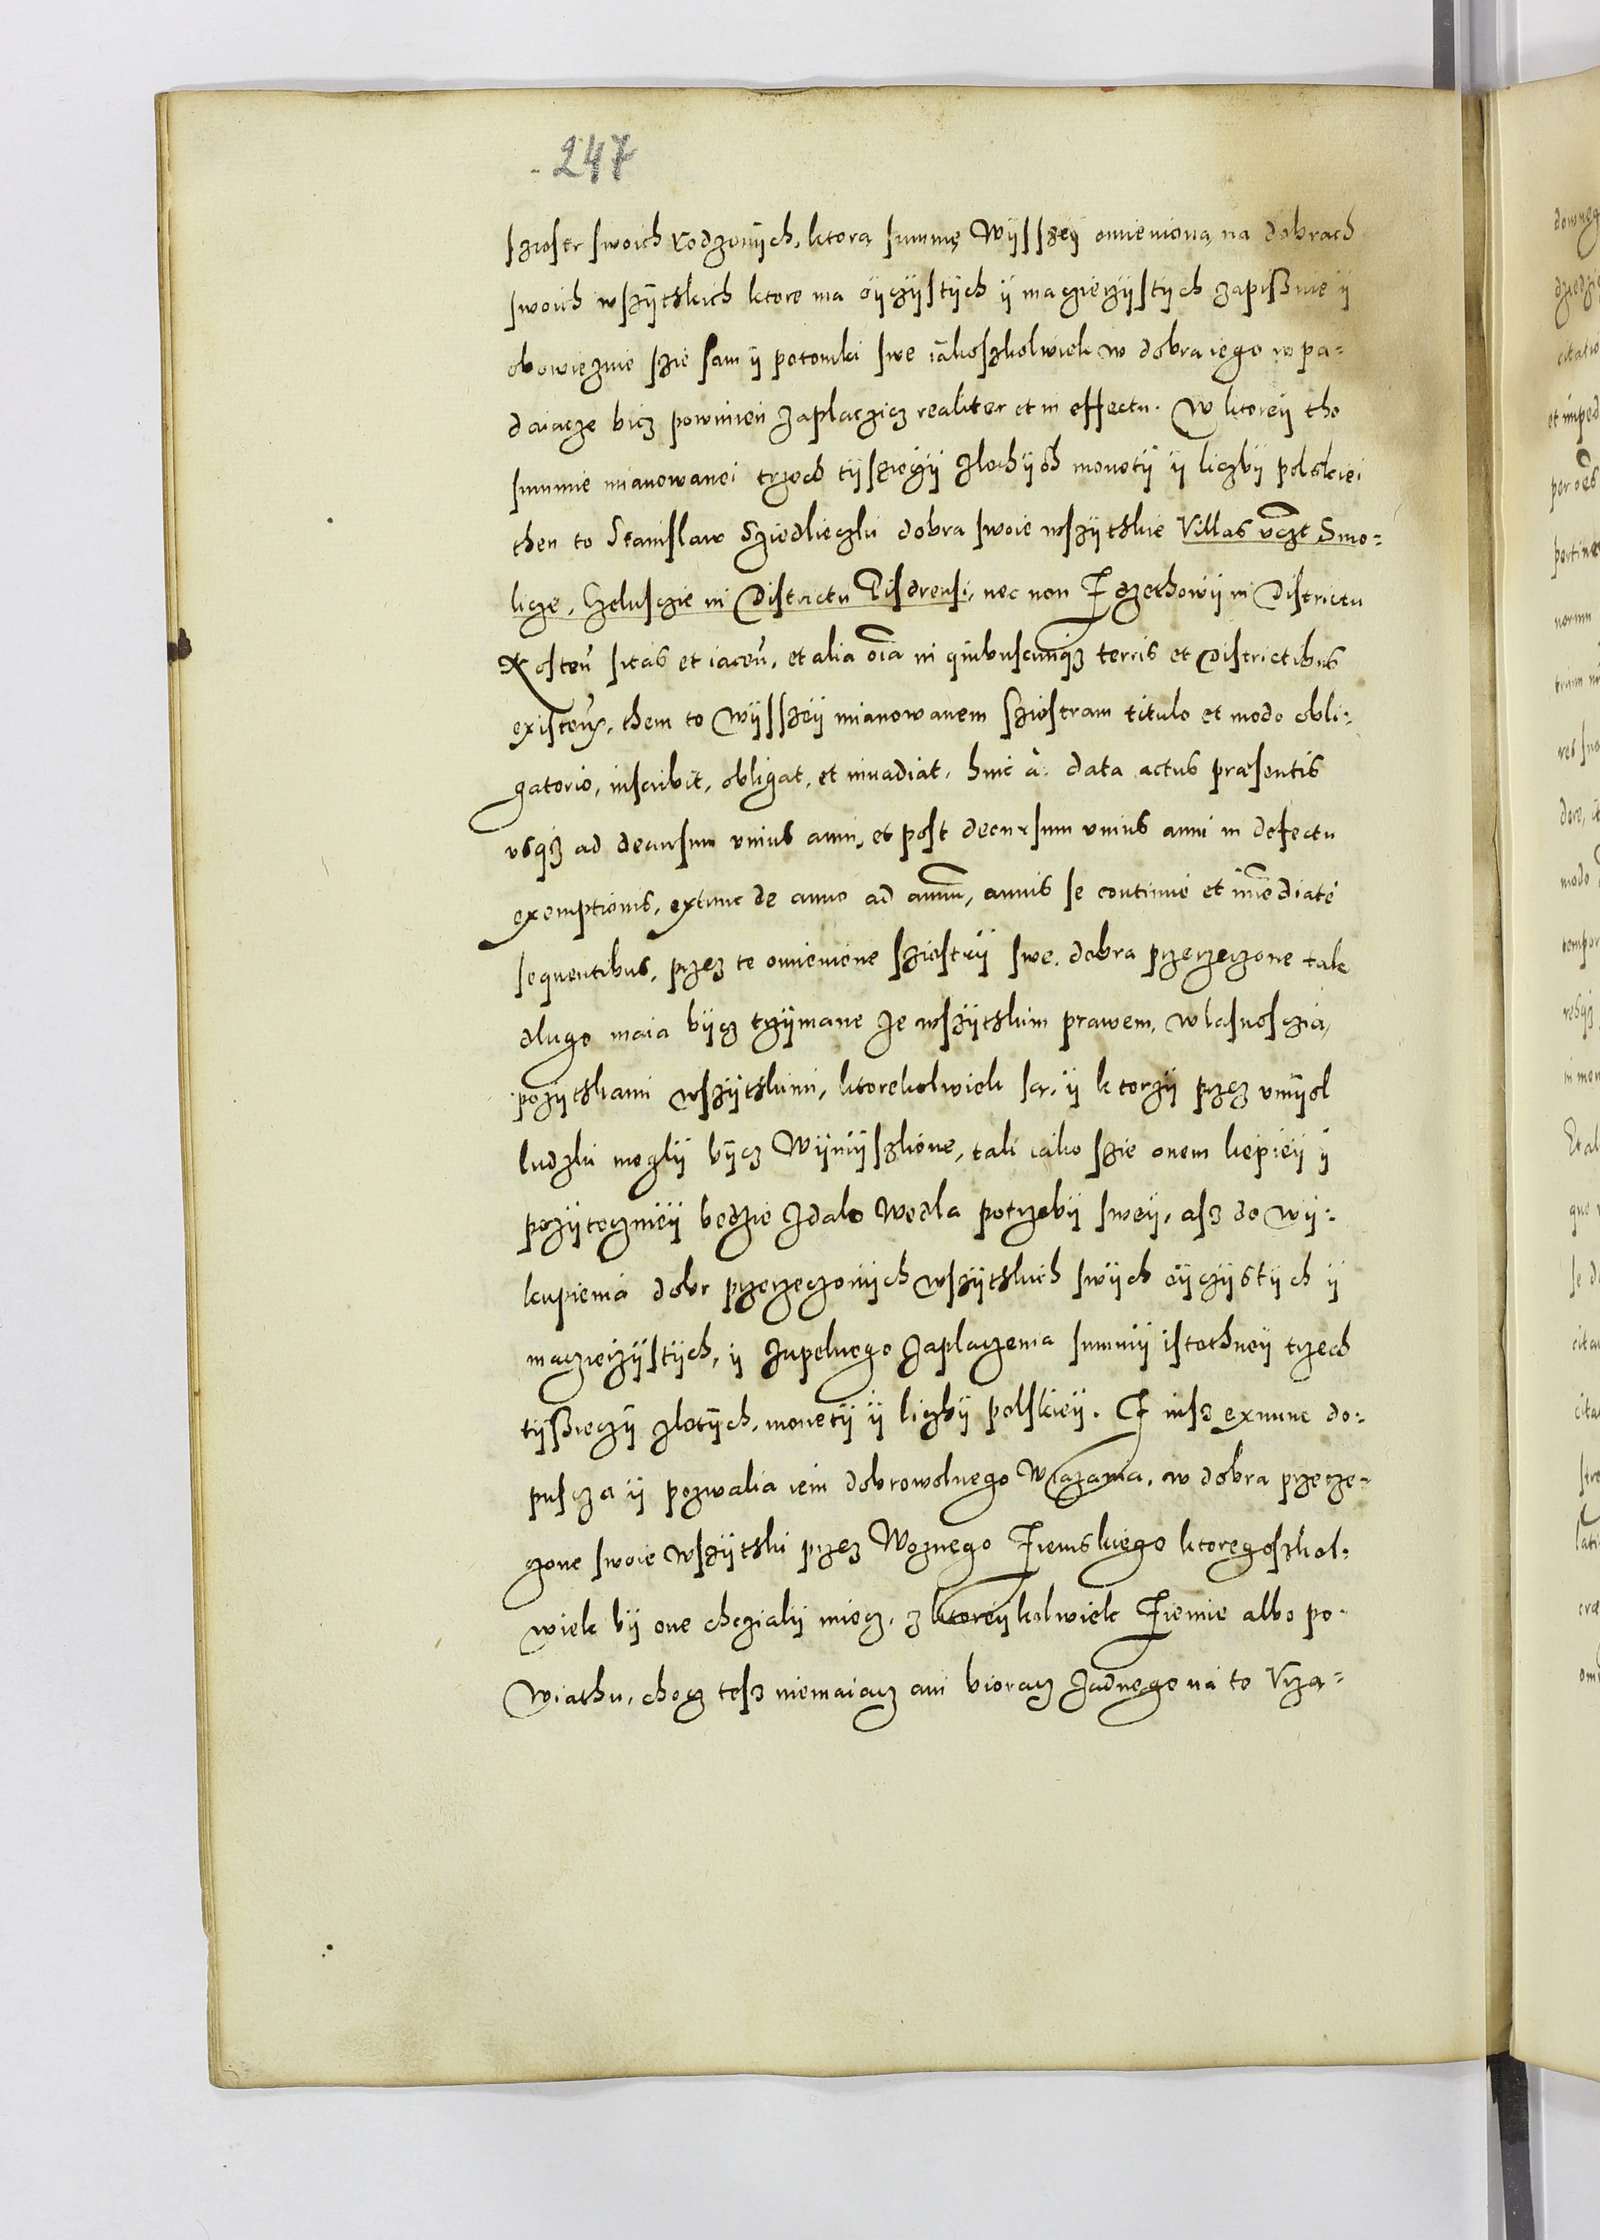 247
sziostr swoich rodzonÿch, ktorą summę wÿsszeÿ omienioną na dobrach
swoich wszÿtskich ktore ma oÿczÿstÿch ÿ maczierzÿstÿch zapissuie ÿ
obowięzuie szie sam ÿ potomki swe iakoszkolwiek w dobra iego wpa-
daiacze bicz powinien zaplaczicz realiter et in effectu. W ktoreÿ tho
summie mianowanei trzech tÿsięcÿ zlothÿch monetÿ ÿ liczbÿ polskiei
then to Stanislaw Sziedlieczki dobra swoie wszÿtskie Villas vczt Smo-
licze, Czelusczie in Districtu Pisdrensi, nec non Zezethowÿ in Districtu
Kosteñ sitas et iaceñ, et alia oĩa in quibuscunqʒ terris et Districtibus
existeñ, them to wÿsszeÿ mianowanem Sziostram titulo et modo obli-
gatorio, inscribit, obligat, et inuadiat, hinc à data actus præsentis
vsqʒ ad decursum vnius anni, et post decursum vnius anni in defectu
exemptionis, extunc de anno ad annũ, annis se continué et im̃ediaté
sequentibus, przez te omienione sziostrÿ swe, dobra przerzeczone tak
dlugo maia bÿcz trzÿmane ze wszÿtskim prawem, wlasnosczią,
pozÿtskami wszÿtskimi, ktorekolwiek są, ÿ ktorzÿ przez vmÿsl
ludzki moglÿ bÿcz wÿmÿszlone, tak iako szie onem liepieÿ ÿ
pozÿtecznieÿ bedzie zdalo wedla potrzebÿ sweÿ, asz do wÿ-
kupienia dobr przerzeczonÿch wszÿtskich swÿch oÿczÿstÿch ÿ
macziezÿstÿch, ÿ zupelnego zaplaczenia summÿ istothneÿ trzech
tÿsszieczÿ zlotÿch, monetÿ ÿ liczbÿ polskieÿ. I iusz exnunc do-
puscza ÿ pozwalia iem dobrowolnego wiązania, w dobra przecze-
zone swoie wszÿtski przez Woznego Ziemskiego ktoregoszkol-
wiek bÿ one chczialÿ miecz, z ktoreÿkolwiek Ziemie albo po-
wiathu, chocz tesz niemaiacz ani bioracz zadnego na to Vrzą-